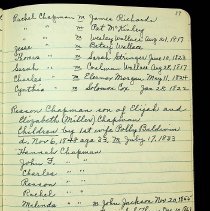 17
Rachel Chapman m James Richards
" " m Pat McKinley
" " m Wesley Wallace Aug 21, 1817
Jesse " m Betsy Wallace
Thomas " m Sarah Stringer June 10, 1823
Sarah " m Coalman Wallace Aug 28, 1817
Charles " m Eleanor Morgan May 11, 1824
Cynthia " m Solomon Cox Jan 28, 1822
Reason Chapman son of Elijah and
Elizabeth (Miller) Chapman
Children by 1st wife Polly Baldwin
d. Nov 6, 1848 age 33, m July 17, 1833
Hannah Chapman
John F. " "
Charles " "
Reason " "
Rachel " "
Melinda " " m John Jackson Nov 20, 1865